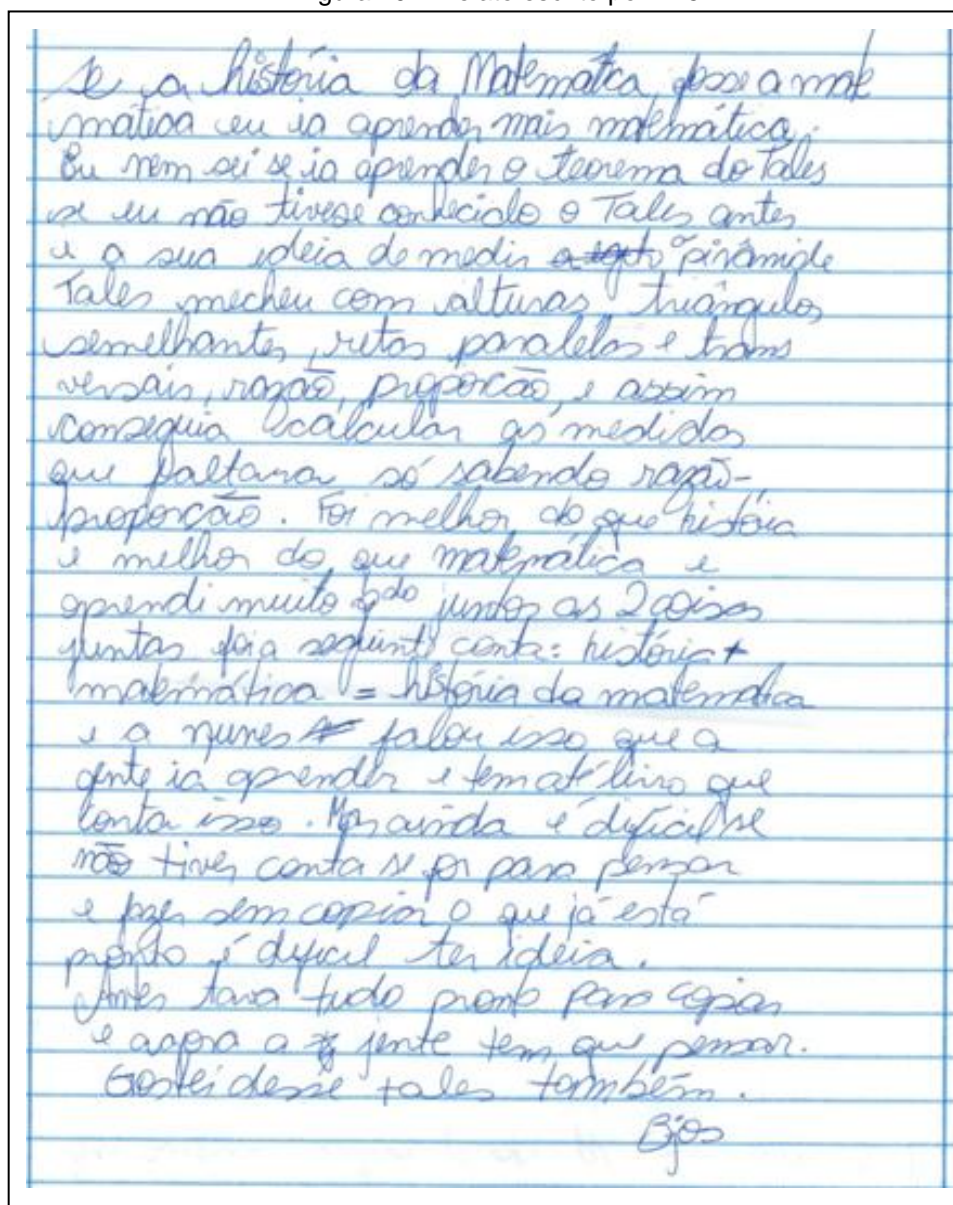 se a história da Matemática fosse a mate
mática eu ia aprender mais matemática.
Eu nem sei se ia aprender o teorema do Tales
se eu não tivese conhecido o Tales antes
e a sua ideia de medir a pirâmide
Tales mecheu com alturas, triângulos
semelhantes, retas paralelas e trans
versais, razão, proporção, e assim
conseguia calcular as medidas
que faltava só sabendo razão-
proporção. Foi melhor do que história
e melhor do que matemática e
aprendi muito qdo juntos as 2 coisas
juntas foi a seguinte conta: história +
matemática = história da matemática
e a nunes falou isso que a
gente ia aprender e tem até livro que
conta isso. Mas ainda é dificil se
não tiver conta se for para pensar
e fazer sem copiar o que já está
pronto é dificil ter ideia.
Antes tava tudo pronto para copiar
e agora a jente tem que pensar.
Gostei desse tales também.
Bjos